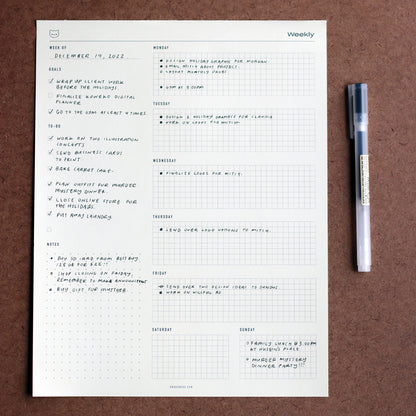 Weekly
WEEK OF
DECEMBER 19, 2022
GOALS
WRAP UP CLIENT WORK
BEFORE THE HOLIDAYS.
FINALISE KONEKO DIGITAL
PLANNER
GO TO THE GYM AT LEAST 4 TIMES
TO-DO
WORK ON TWO ILLUSTRATION
CONCEPTS
SEND BUSINESS CARDS
TO PRINT
BAKE CARROT CAKE.
PLAN OUTFITS FOR MURDER
MYSTERY DINNER.
CLOSE ONLINE STORE FOR
THE HOLIDAYS.
PUT AWAY LAUNDRY
NOTES
BUY SD CARD FROM BEST BUY
128 GB FOR
SHOP CLOSING ON FRIDAY,
REMEMBER TO MAKE ANNOUNCEMENT
BUY GIFT FOR
MONDAY
DESIGN HOLIDAY GRAPHIC FOR MORGAN.
EMAIL ABOUT PROJECT.
LAYOUT MONTHLY
GYM AT 5:00PM
TUESDAY
DESIGN 2 HOLIDAY GRAPHICS FOR
WORK ON LOGOS FOR
WEDNESDAY
FINALIZE LOGOS FOR
THURSDAY
SEND OVER LOGO OPTIONS TO
FRIDAY
SEND OVER TWO DESIGN IDEAS TO
WORK ON
SATURDAY
SUNDAY
FAMILY LUNCH @ 3:00PM
AT PLACE.
MURDER MYSTERY
DINNER PARTY!!!